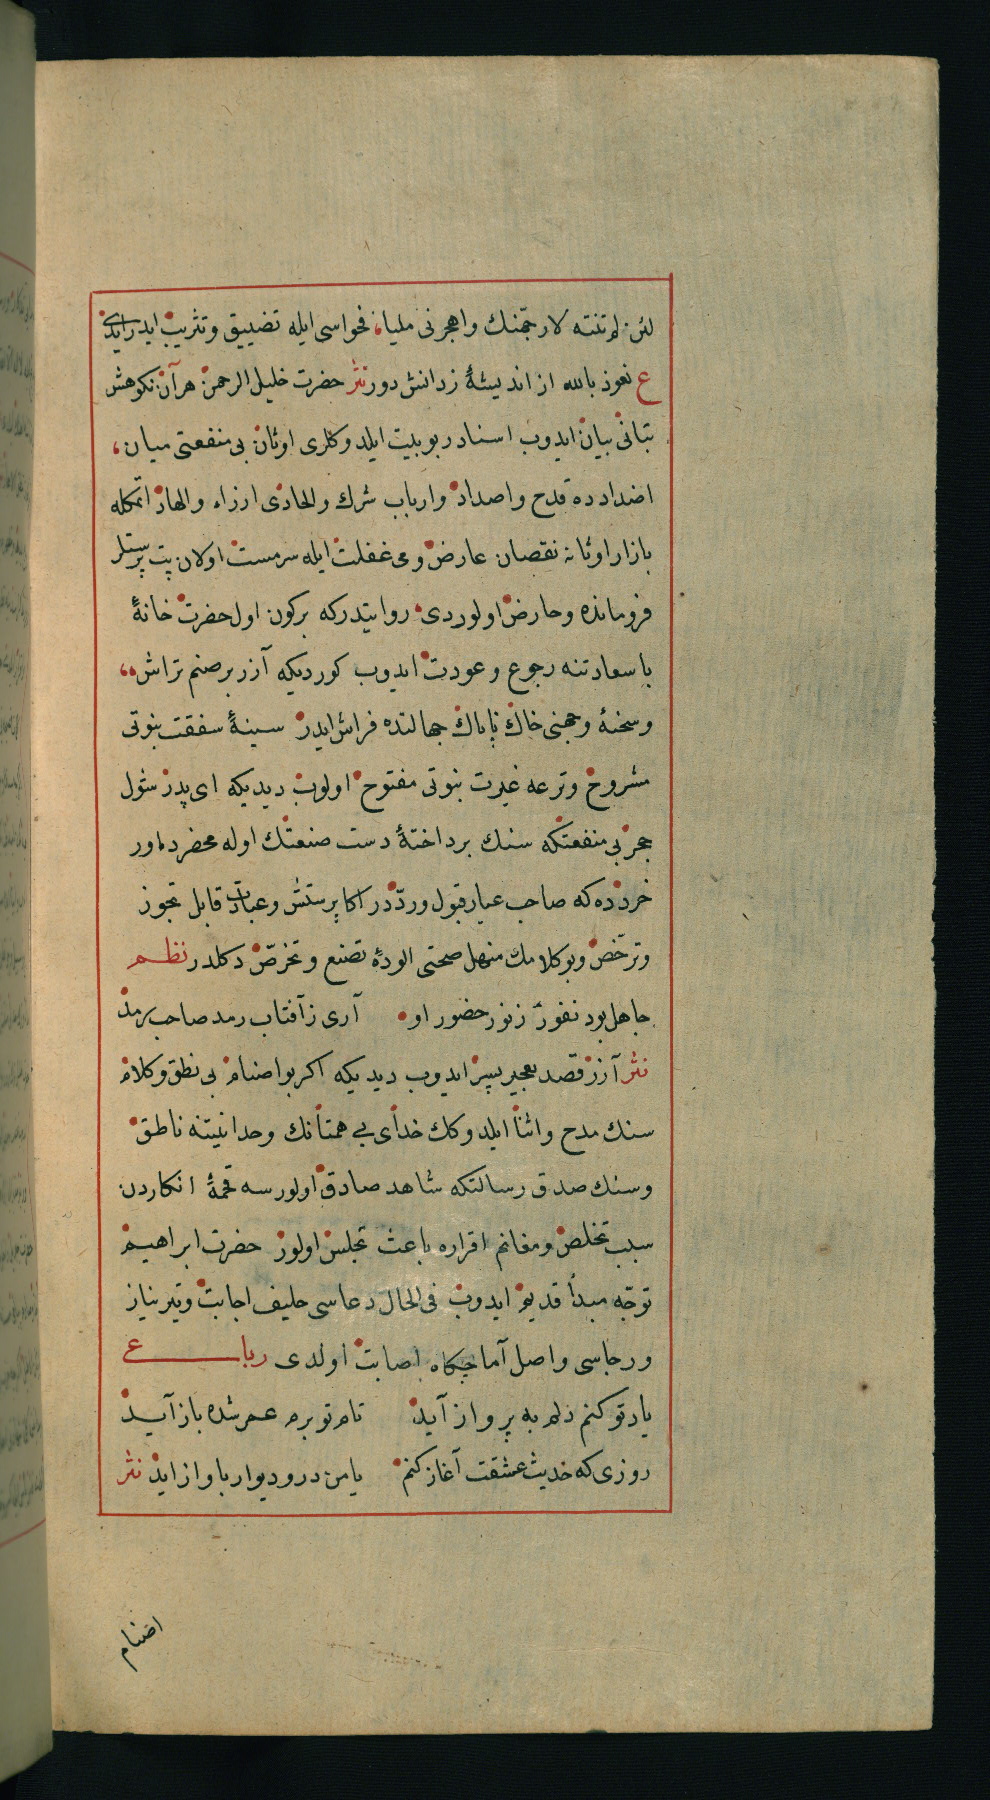 لئن لم تنته لارجمنك واهجرنی ملیا، فحواسی ایله تضییق وتثریب ایدر ایدی
ع نعوذ بالله از اندیشۀ ز دانش دور نثر حضرت خلیل الرحمن هر آن نکوهش
بتانی بیان ایدوب اسناد ربوبیت ایلدوکلری اوثان بی منفعتی میان،
اضدادده قدح واصداد وارباب شرك والحادی ارزاء والهاد اتمکله
بازار اوثانه نقصان عارض ومی غفلت ایله سرمست اولان بت پرستلر
فرومانده وحارض اولوردی، روایتدرکه برکون اول حضرت خانۀ
با سعادتنه رجوع وعودت ایدوب کوردیکه آزر بر صنم تراش،،
وسخنۀ وجهنی خاك ناپاك جهالتده فراش ایدر سینۀ سفقت بنوتی
مشروح وترعه غیرت بنوتی مفتوح اولوب دیدیکه ای پدر شول
حجر بی منفعتکه سنك برداختۀ دست صنعتك اوله محضر داور
خردده که صاحب عیار قبول ورددر اکا پرستش وعبادت قابل تجوز
وترخص وبو کلامك منهل صحتی الودۀ تصنع وتخرص دکلدر نظم
جاهل بود نفور ز نور حضور او • آری ز آفتاب رمد صاحب رمد
نثر آزر قصد تعجیر پسر ایدوب دیدیکه اکر بو اصنام بی نطق وکلام
سنك مدح واثنا ایلدوکك خدای بی همتانك وحدانیتنه ناطق
وسنك صدق رسالتکه شاهد صادق اولورسه قحمۀ انکاردن
سبب تخلص ومغانم اقراره باعث تجلس اولور حضرت ابراهیم
توجه مبدأ قدیم ایدوب فی الحال دعاسی حلیف اجابت وتیر نیاز
ورجاسی واصل آماجکاه اصابت اولدی رباع
یاد تو کنم دلم به پرواز آید نام تو برم عمر شده باز آید
روزی که حدیث عشقت آغاز کنم با من در ودیوار باواز اید نثر
اصنام